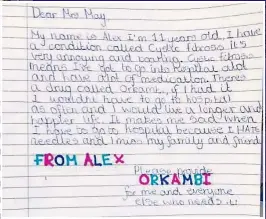 Dear Mrs May,
My name is Alex I'm 11 years old. I have
a condition called Cystic fibrosis its
very annoying and boring. Cystic fibrosis
means I've got to go into hospital alot
and have alot of medication. Theres
a drug called Orkambi, if I had it
I wouldnt have to go to hospital
as often and I would live a longer and
happier life. It makes me sad when
I have to go to hospital because I HATE
needles and I miss my family and friends
FROM ALEX
Please provide
ORKAMBI
for me and everyone
else who needs it